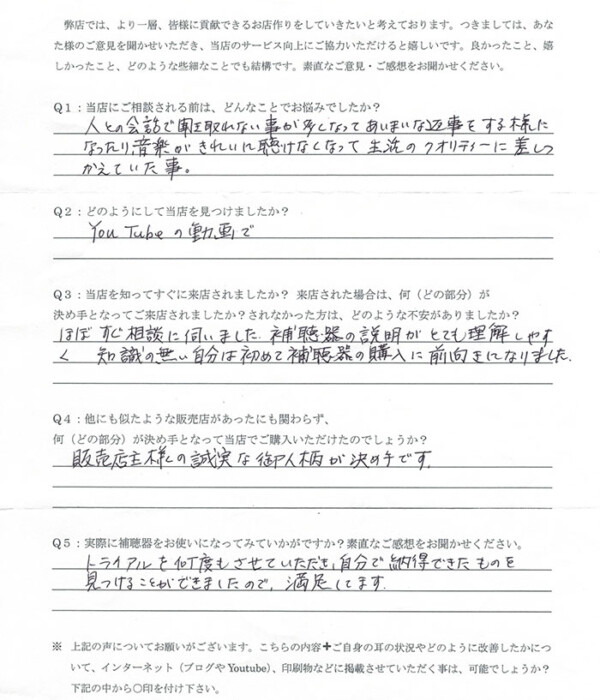 弊店では、より一層、皆様に貢献できるお店作りをしていきたいと考えております。つきましては、あな
た様のご意見を聞かせいただき、当店のサービス向上にご協力いただけると嬉しいです。良かったこと、嬉
しかったこと、どのような些細なことでも結構です。素直なご意見・ご感想をお聞かせください。
Q1：当店にご相談される前は、どんなことでお悩みでしたか？
人との会話で聞き取れない事が多くなってあいまいな返事をする様に
なったり音楽がきれいに聴けなくなって生活のクオリティーに差しつ
かえていた事。
Q2：どのようにして当店を見つけましたか？
You Tubeの動画で
Q3：当店を知ってすぐに来店されましたか？ 来店された場合は、何（どの部分）が
決め手となってご来店されましたか？されなかった方は、どのような不安がありましたか？
ほぼすぐ相談に伺いました。補聴器の説明がとても理解しやす
く 知識の無い自分は初めて補聴器の購入に前向きになりました。
Q4：他にも似たような販売店があったにも関わらず、
何（どの部分）が決め手となって当店でご購入いただけたのでしょうか？
販売店主様の誠実な御人柄が決め手です。
Q5：実際に補聴器をお使いになってみていかがですか？素直なご感想をお聞かせください。
トライアルを何度もさせていただき、自分で納得できたものを
見つけることができましたので、満足してます。
※ 上記の声についてお願いがございます。こちらの内容+ご自身の耳の状況やどのように改善したかにつ
いて、インターネット（ブログやYoutube）、印刷物などに掲載させていただく事は、可能でしょうか？
下記の中から○印を付け下さい。